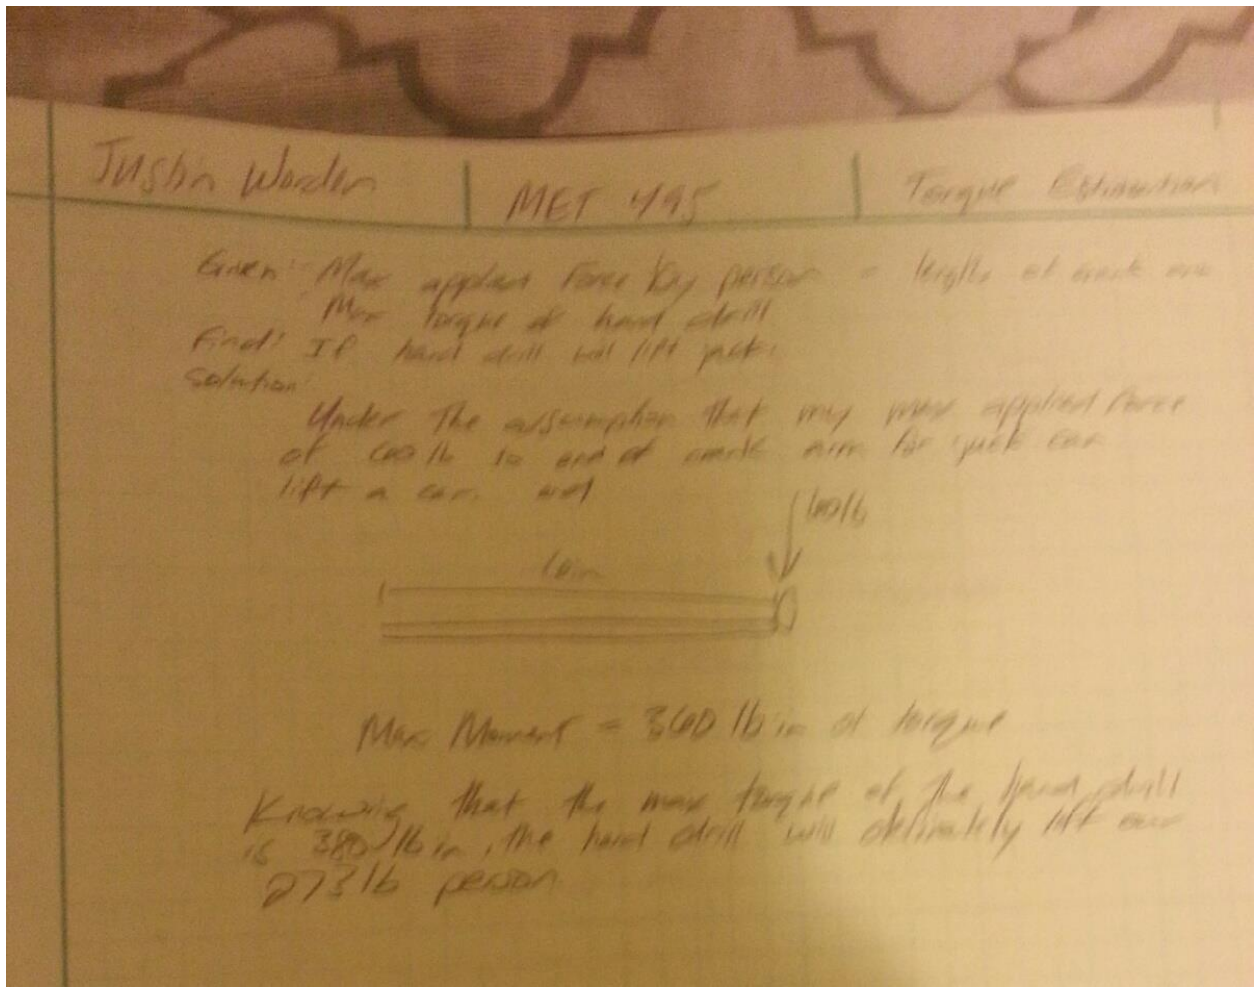 Justin Worden
MET 495
Torque Estimation
Given: Max applied Force by person = length of crank arm
Max torque of hand drill
Find: If hand drill will lift jack.
Solution:
Under The assumption that my max applied force
of 60 lb to end of crank arm for jack can
lift a car. and
60lb
6in
Max Moment = 360 lb in of torque
Knowing that the max torque of the hand drill
is 380 lb in, the hand drill will definately lift our
273 lb person